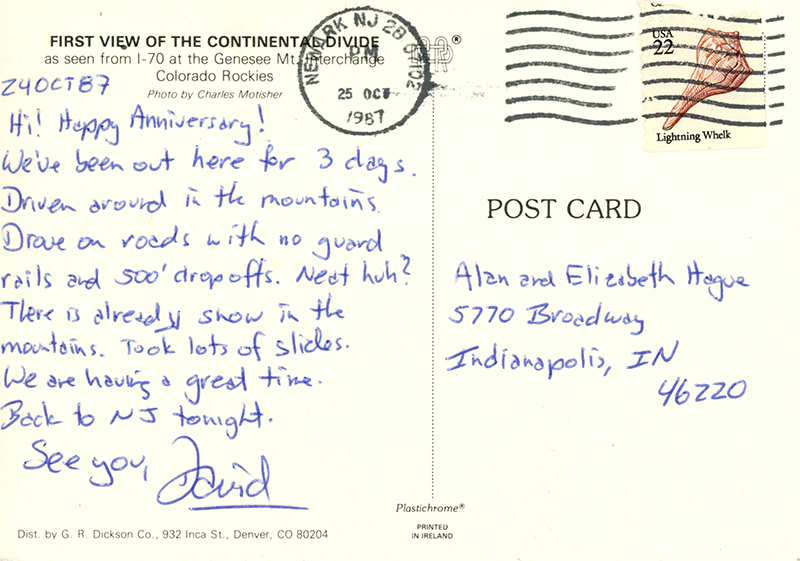 FIRST VIEW OF THE CONTINENTAL DIVIDE
as seen from I-70 at the Genesee Mt. Interchange
Colorado Rockies
Photo by Charles Motisher
24 OCT 87
Hi! Happy Anniversary!
We've been out here for 3 days.
Driven around in the mountains.
Drove on roads with no guard
rails and 500' dropoffs. Neat huh?
There is already snow in the
mountains. Took lots of slides.
We are having a great time.
Back to NJ tonight.
See you,
David
Dist. by G. R. Dickson Co., 932 Inca St., Denver, CO 80204
NEWARK NJ
PM
25 OCT
1987
USA
22
Lightning Whelk
POST CARD
Alan and Elizabeth Hague
5770 Broadway
Indianapolis, IN
46220
Plastichrome®
PRINTED
IN IRELAND